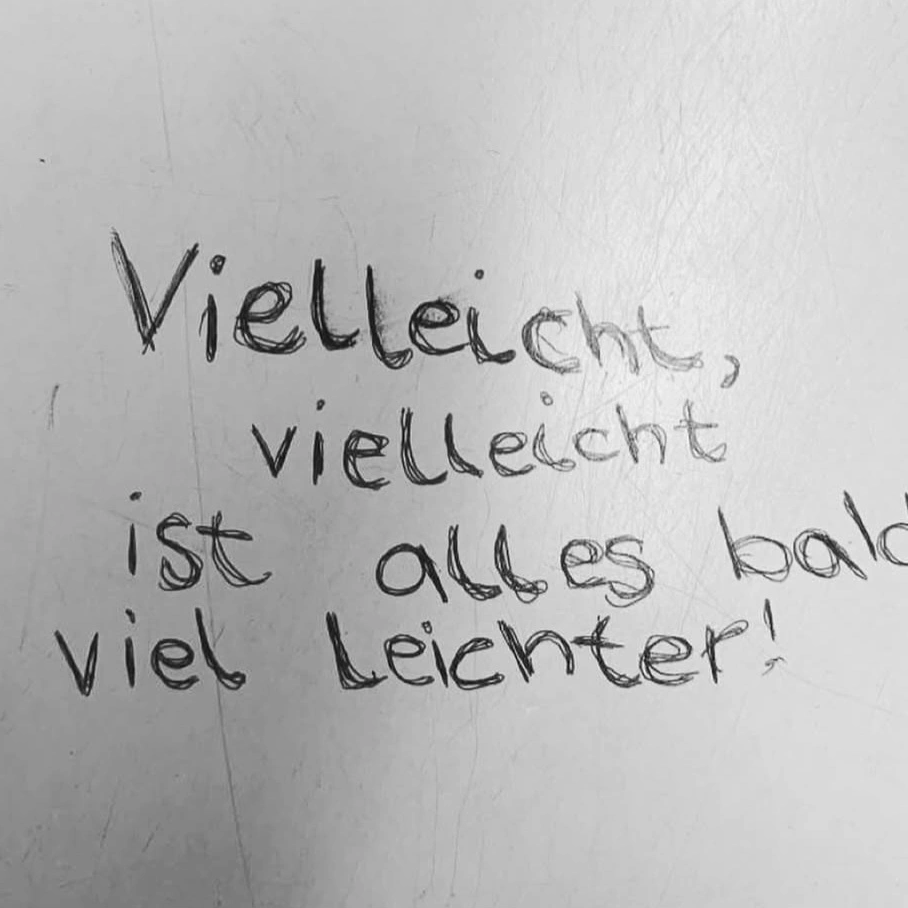 Vielleicht,
vielleicht
ist alles bald
viel leichter!